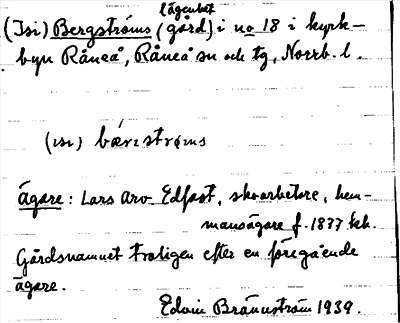 lägenhet
(Isi) Bergströms (gård) i no 18 i kyrk-
byn Råneå, Råneå sn och tg, Norrb. l.
(ısı) bærıstrøms
ägare: Lars Arv. Edfast, skoarbetare, hem-
mansägare f. 1877 
Gårdsnamnet troligen efter en föregående
ägare.
Edvin Brännström 1939.